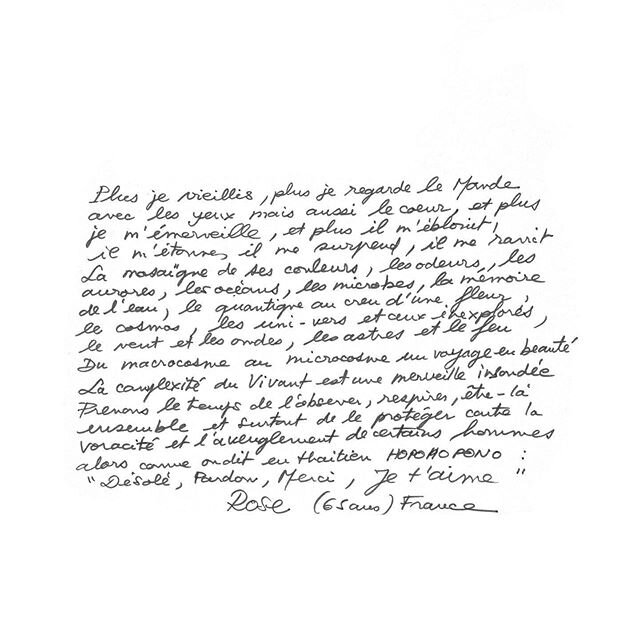 Plus je vieillis, plus je regarde le Monde
avec les yeux mais aussi le coeur, et plus
je m'émerveille, et plus il m'éblouit,
il m'étonne, il me surprend, il me ravit
La mosaïque de ses couleurs, les odeurs, les
aurores, les océans, les microbes, la mémoire
de l'eau, le quantique au creu d'une fleur,
le cosmos, les uni-vers et ceux inexplorés,
le vent et les ondes, les astres et le feu
Du macrocosme au microcosme un voyage en beauté
La complexité du Vivant est une merveille insondée
Prenons le temps de l'observer, respirer, être-là
ensemble et surtout de le protéger contre la
voracité et l'aveuglement de certains hommes
alors comme on dit en Haitien HOPOHOPONO :
"Désolé, Pardon, Merci, Je t'aime"
Rose (65ans) France